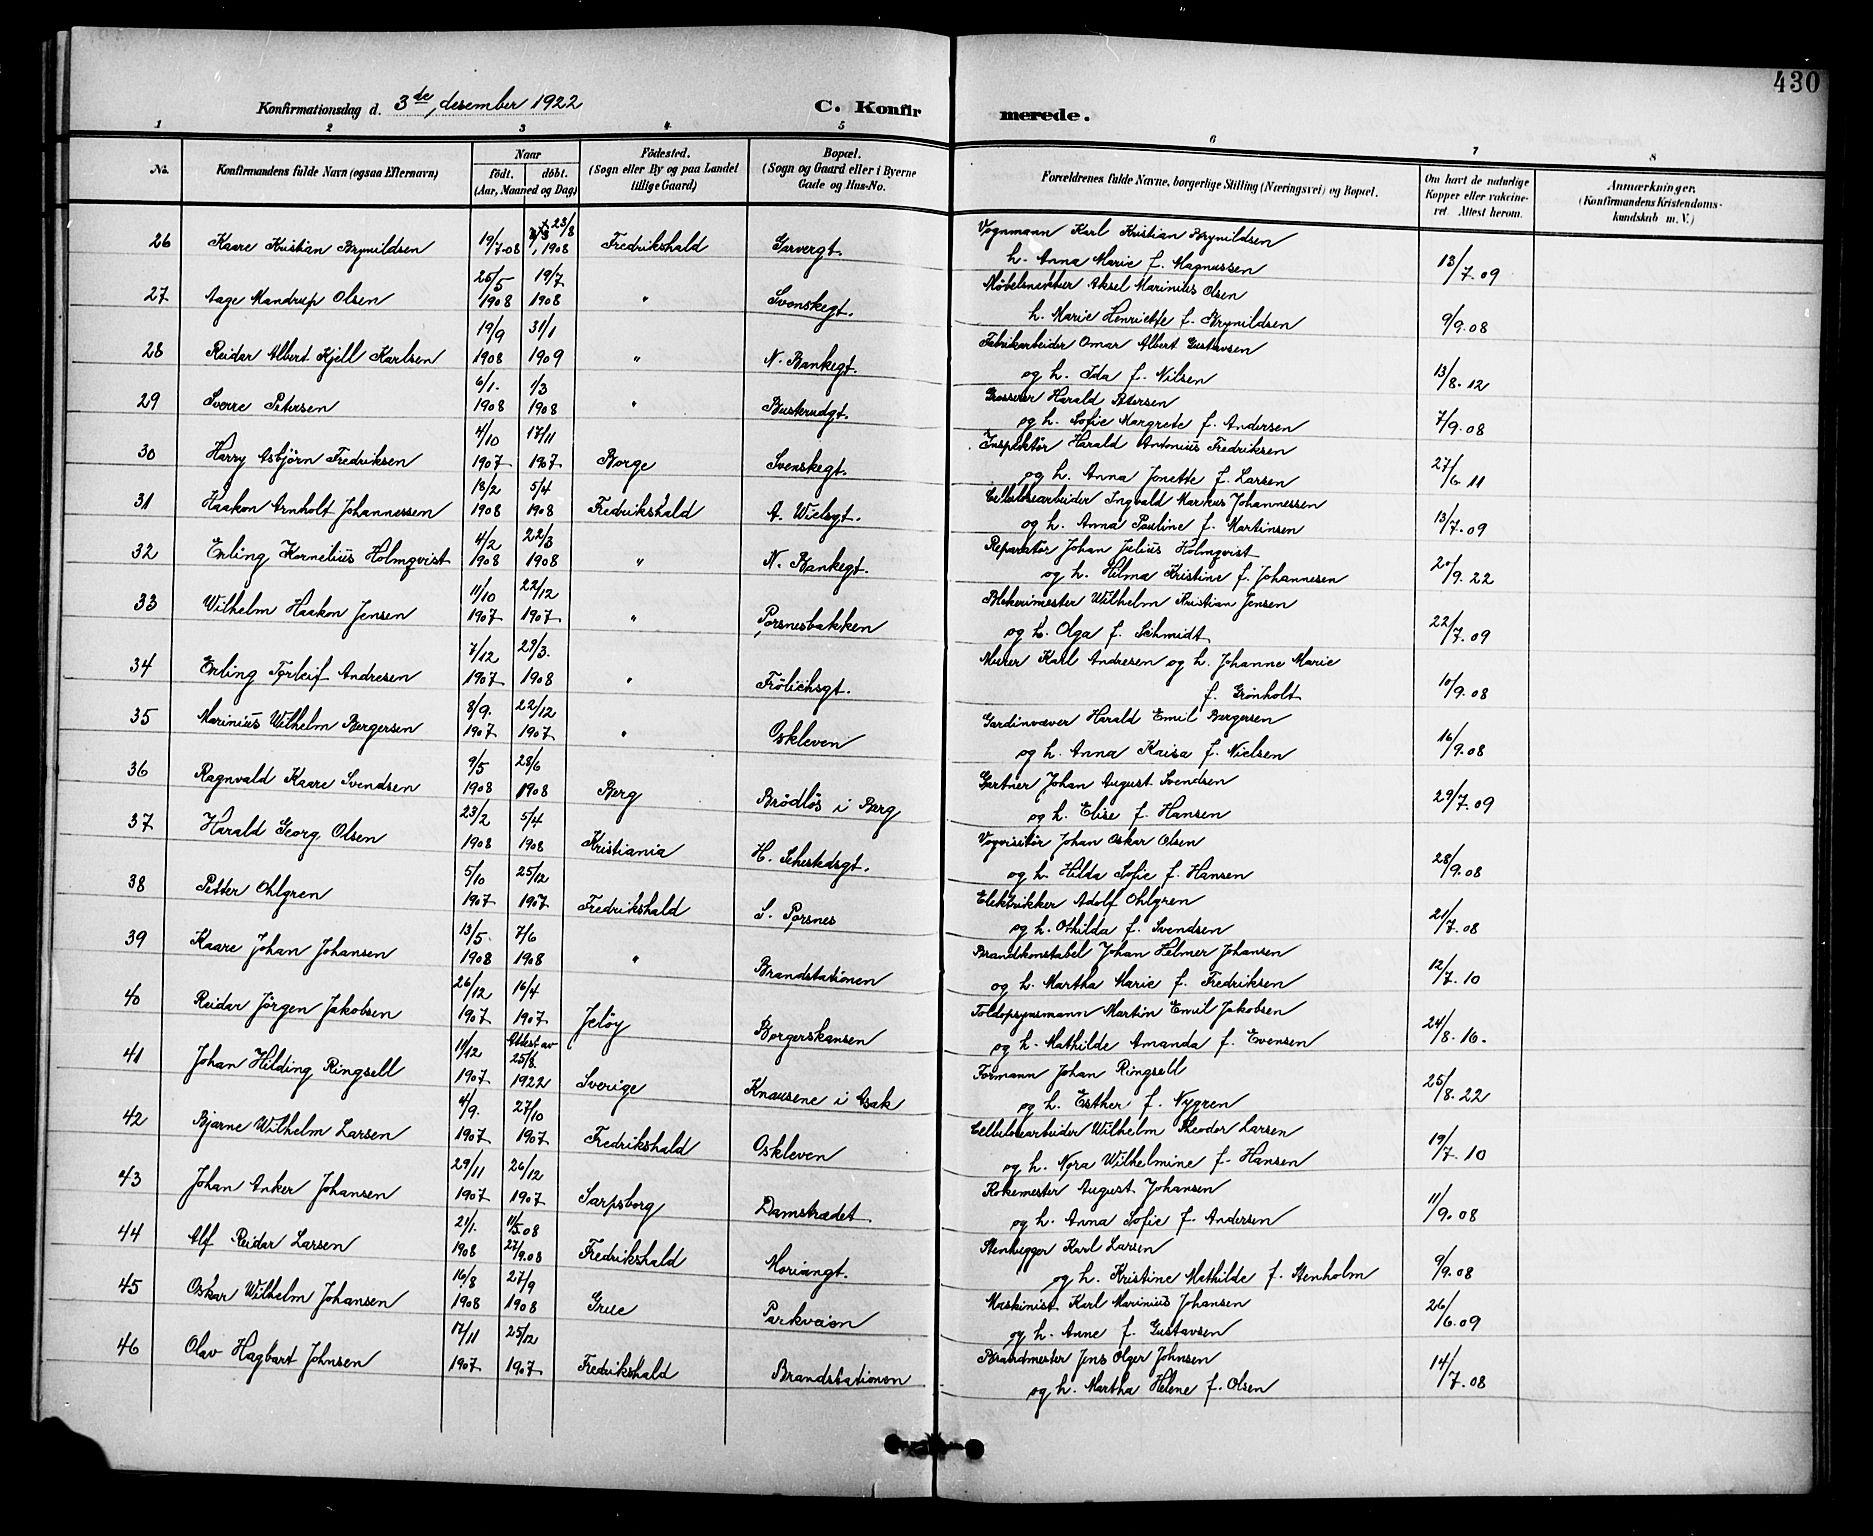 430
Konfirmationsdag d. 3de, desember 1922 C. Konfirmerede.
1 2 3 4 5 6 7 8
No. Konfirmandens fulde Navn (ogsaa Efternavn) Naar födt. döbt. (Aar, Maaned og Dag) Födested. (Sogn eller By og paa Landet tillige Gaard) Bopæl. (Sogn og Gaard eller i Byerne Gade og Hus-No. Forældrenes fulde Navne, borgerlige Stilling (Næringsvei) og Bopæl. Om havt de naturlige Kopper eller vakcineret. Attest herom. Anmærkninger. (Konfirmandens Kristendomskundskab m. V.)
26 Kaare Kristian Brynildsen 19/7-08 23/8 1908 Fredrikshald Garvergt. Vognmann Karl Kristian Brynildsen
h. Anna Marie f. Magnussen 13/7.09
27 Aage Mandrup Olsen 25/5 1908 19/7 1908 " Svenskegt. Møbelsnedker Aksel Marinius Olsen
h. Marie Henriette f. Brynildsen 9/9.08
28 Reidar Albert Kjell Karlsen 19/9 1908 31/1 1909 " N. Bankegt. Fabrikarbeider Omar Albert Gustavsen
og h. Ida f. Nilsen 13/8.12
29 Sverre Petersen 6/1. 1908 1/3 1908 " Buskrudgt. Grosserer Harald Petersen
og h. Sofie Margrete f. Andersen 7/9.08
30 Harry Asbjörn Fredriksen 4/10 1907 17/11 1907 Borge Svenskegt. Inspektör Harald Antonius Fredriksen
og h. Anna Jonette f. Larsen 27/6.11
31 Haakon Arnholt Johannessen 18/2 1908 5/4 1908 Fredrikshald A. Wielsgt. Cellulosearbeider Ingvald Markus Johannessen
og h. Anna Pauline f. Martinsen 13/7.09
32 Erling Kornelius Holmqvist 4/2 1908 22/3 1908 " N. Bankegt. Reparatör Johan Julius Holmqvist
og h. Hilma Kristine f. Johannesen 20/9.22
33 Wilhelm Haakon Jensen 11/10 1907 22/12 1907 " Porsnesbakken Blekerimester Wilhelm Kristian Jensen
og h. Olga f. Schmidt 22/7.09
34 Erling Torleif Andresen 7/12 1907 29/3. 1908 " Frölichsgt. Murer Karl Andresen og h. Johanne Marie
f. Grönholt 10/9.08
35 Marinius Wilhelm Bergersen 8/9. 1907 22/12 1907 " Oskleven Gardinvæver Harald Emil Bergersen
og h. Anna Kaisa f. Nielsen 16/9.08
36 Ragnvald Kaare Svendsen 9/5 1908 28/6 1908 Berg Brödlös i Berg Gartner Johan August Svendsen
og h. Elise f. Hansen 29/7.09
37 Harald Georg Olsen 23/2 1908 5/4 1908 Kristiania Vognvisitör Johan Oskar Olsen
og h. Hilda Sofie f. Hansen 28/9.08
38 Petter Ohlgren 5/10 1907 25/12 1907 Fredrikshald S. Porsnes Elektrikker Adolf Ohlgren
og h. Othilda f. Svendsen 21/7.08
39 Kaare Johan Johansen 13/5. 1908 7/6 1908 " Brandstationen Brandkonstabel Johan Helmer Johansen
og h. Martha Marie f. Fredriksen 12/7.10
40 Reidar Jörgen Jakobsen 26/12 1907 16/4 1907 Jeløy Borgerskansen Toldopsynsmann Martin Emil Jakobsen
og h. Mathilde Amanda f. Evensen 24/8.16.
41 Johan Hilding Ringsell 11/12 1907 Attest av 25/8. 1922 Sverige Knausene i Asak Formann Johan Ringsell
og h. Esther f. Nygren 25/8.22
42 Bjarne Wilhelm Larsen 4/9. 1907 27/10 1907 Fredrikshald Oskleven Cellulosearbeider Wilhelm Theodor Larsen
og h. Nora Wilhelmine f. Hansen 19/7.10
43 Johan Anker Johansen 29/11 1907 26/12 1907 Sarpsborg Damstrædet Rokemester August Johansen
og h. Anna Sofie f. Andersen 11/9.08
44 Alf Reidar Larsen 21/1. 1908 11/5.08 27/9.08 Fredrikshald Moriangt. Stenhugger Karl Larsen
og h. Kristine Mathilde f. Stenholm 9/9.08
45 Oskar Wilhelm Johansen 16/8 1908 27/9 1908 Grue Parkveien Maskinist Karl Marinius Johansen
og h. Anne f. Gustavsen 26/6.09
46 Olav Hagbart Johnsen 17/11 1907 25/12 1907 Fredrikshald Brandstationen Brandmester Jens Olger Johnsen
og h. Martha Helene f. Olsen 14/7.08